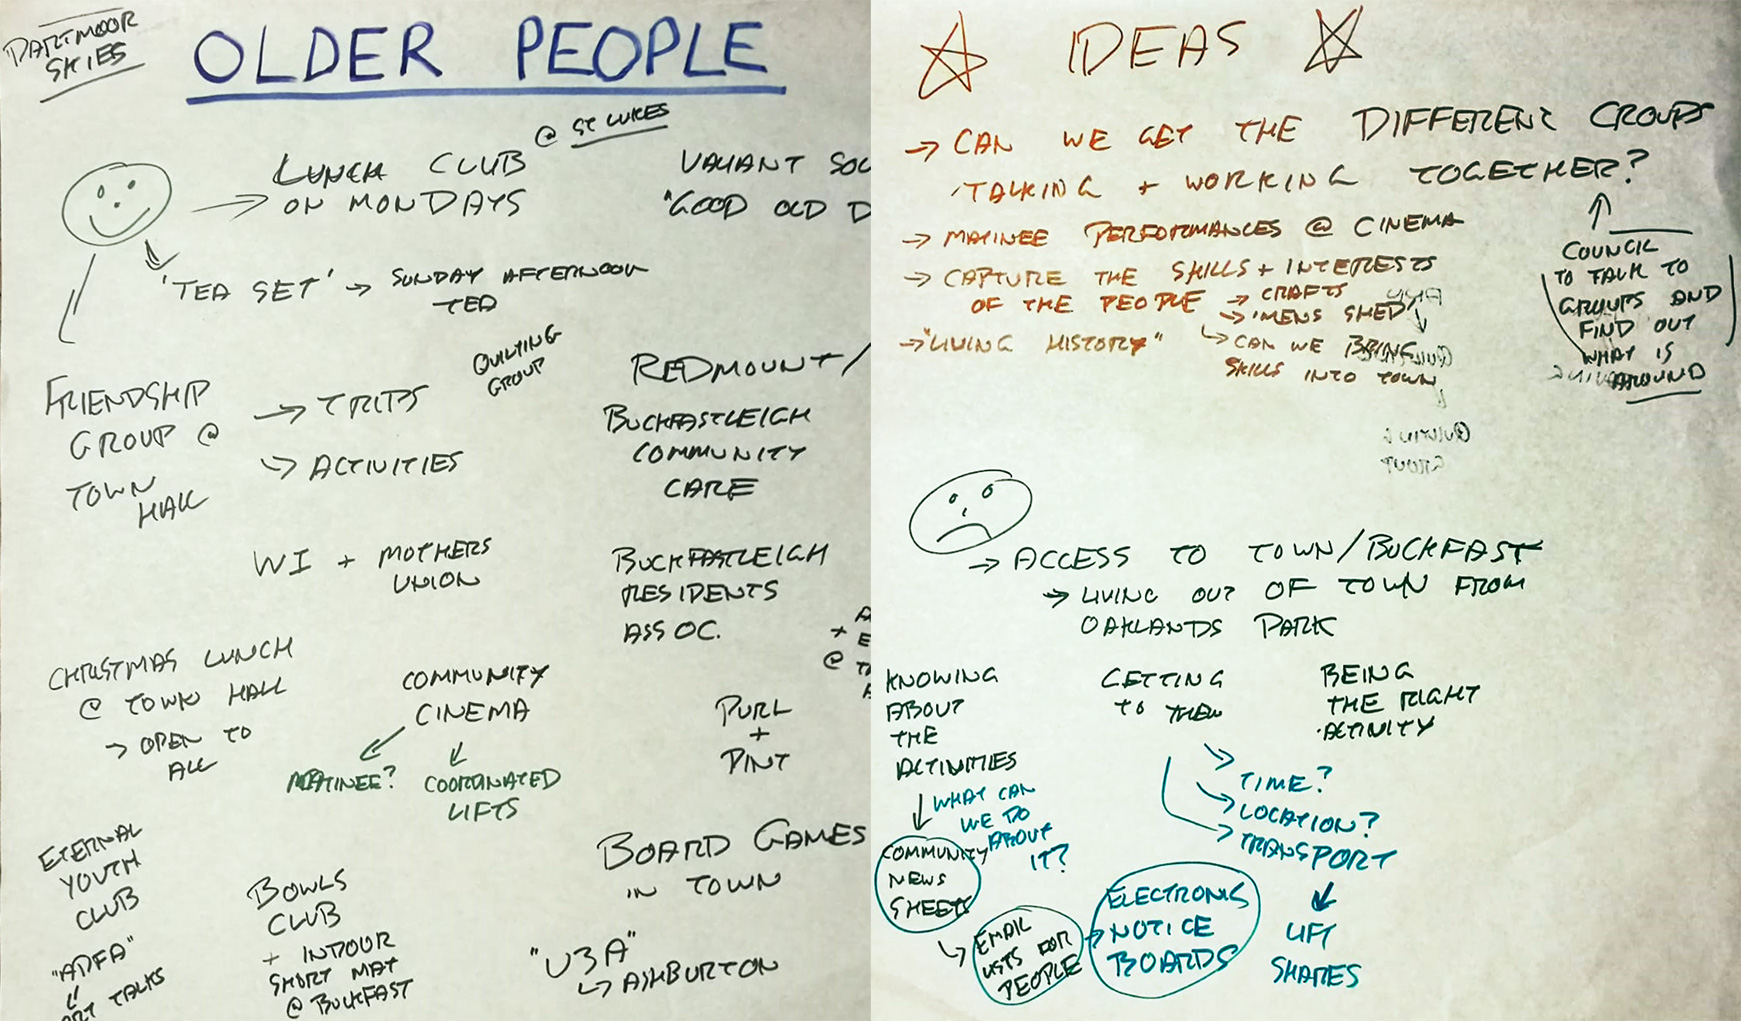 DARTMOOR
SKIES
OLDER PEOPLE
LUNCH CLUB @ ST LUKES
ON MONDAYS
VALIANT SOL
"GOOD OLD D
'TEA SET' → SUNDAY AFTERNOON
TEA
QUILTING
GROUP
FRIENDSHIP
GROUP @
TOWN
HALL
→ TRIPS
→ ACTIVITIES
REDMOUNT/
BUCKFASTLEIGH
COMMUNITY
CARE
WI + MOTHERS
UNION
BUCKFASTLEIGH
RESIDENTS
ASSOC.
CHRISTMAS LUNCH
@ TOWN HALL
→ OPEN TO
ALL
COMMUNITY
CINEMA
MATINEE?
COORDINATED
LIFTS
PURL
+
PINT
+
@
ETERNAL
YOUTH
CLUB
BOWLS
CLUB
+ INDOOR
SHORT MAT
@ BUCKFAST
BOARD GAMES
IN TOWN
"ADFA"
ART TALKS
"U3A"
→ ASHBURTON
IDEAS
→ CAN WE GET THE DIFFERENT GROUPS
TALKING + WORKING TOGETHER?
COUNCIL
TO TALK TO
GROUPS AND
FIND OUT
WHAT IS
AROUND
→ MATINEE PERFORMANCES @ CINEMA
→ CAPTURE THE SKILLS + INTERESTS
OF THE PEOPLE → CRAFTS
→ 'MENS SHED'
→ CAN WE BRING
SKILLS INTO TOWN
→ "LIVING HISTORY"
QUILTING
GROUP
→ ACCESS TO TOWN/BUCKFAST
→ LIVING OUT OF TOWN FROM
OAKLANDS PARK
KNOWING
ABOUT
THE
ACTIVITIES
GETTING
TO THEM
BEING
THE RIGHT
ACTIVITY
WHAT CAN
WE DO
ABOUT
IT?
→ TIME?
→ LOCATION?
→ TRANSPORT
LIFT
SHARES
COMMUNITY
NEWS
SHEETS
→ EMAIL
LISTS FOR
PEOPLE
→ ELECTRONIC
NOTICE
BOARDS